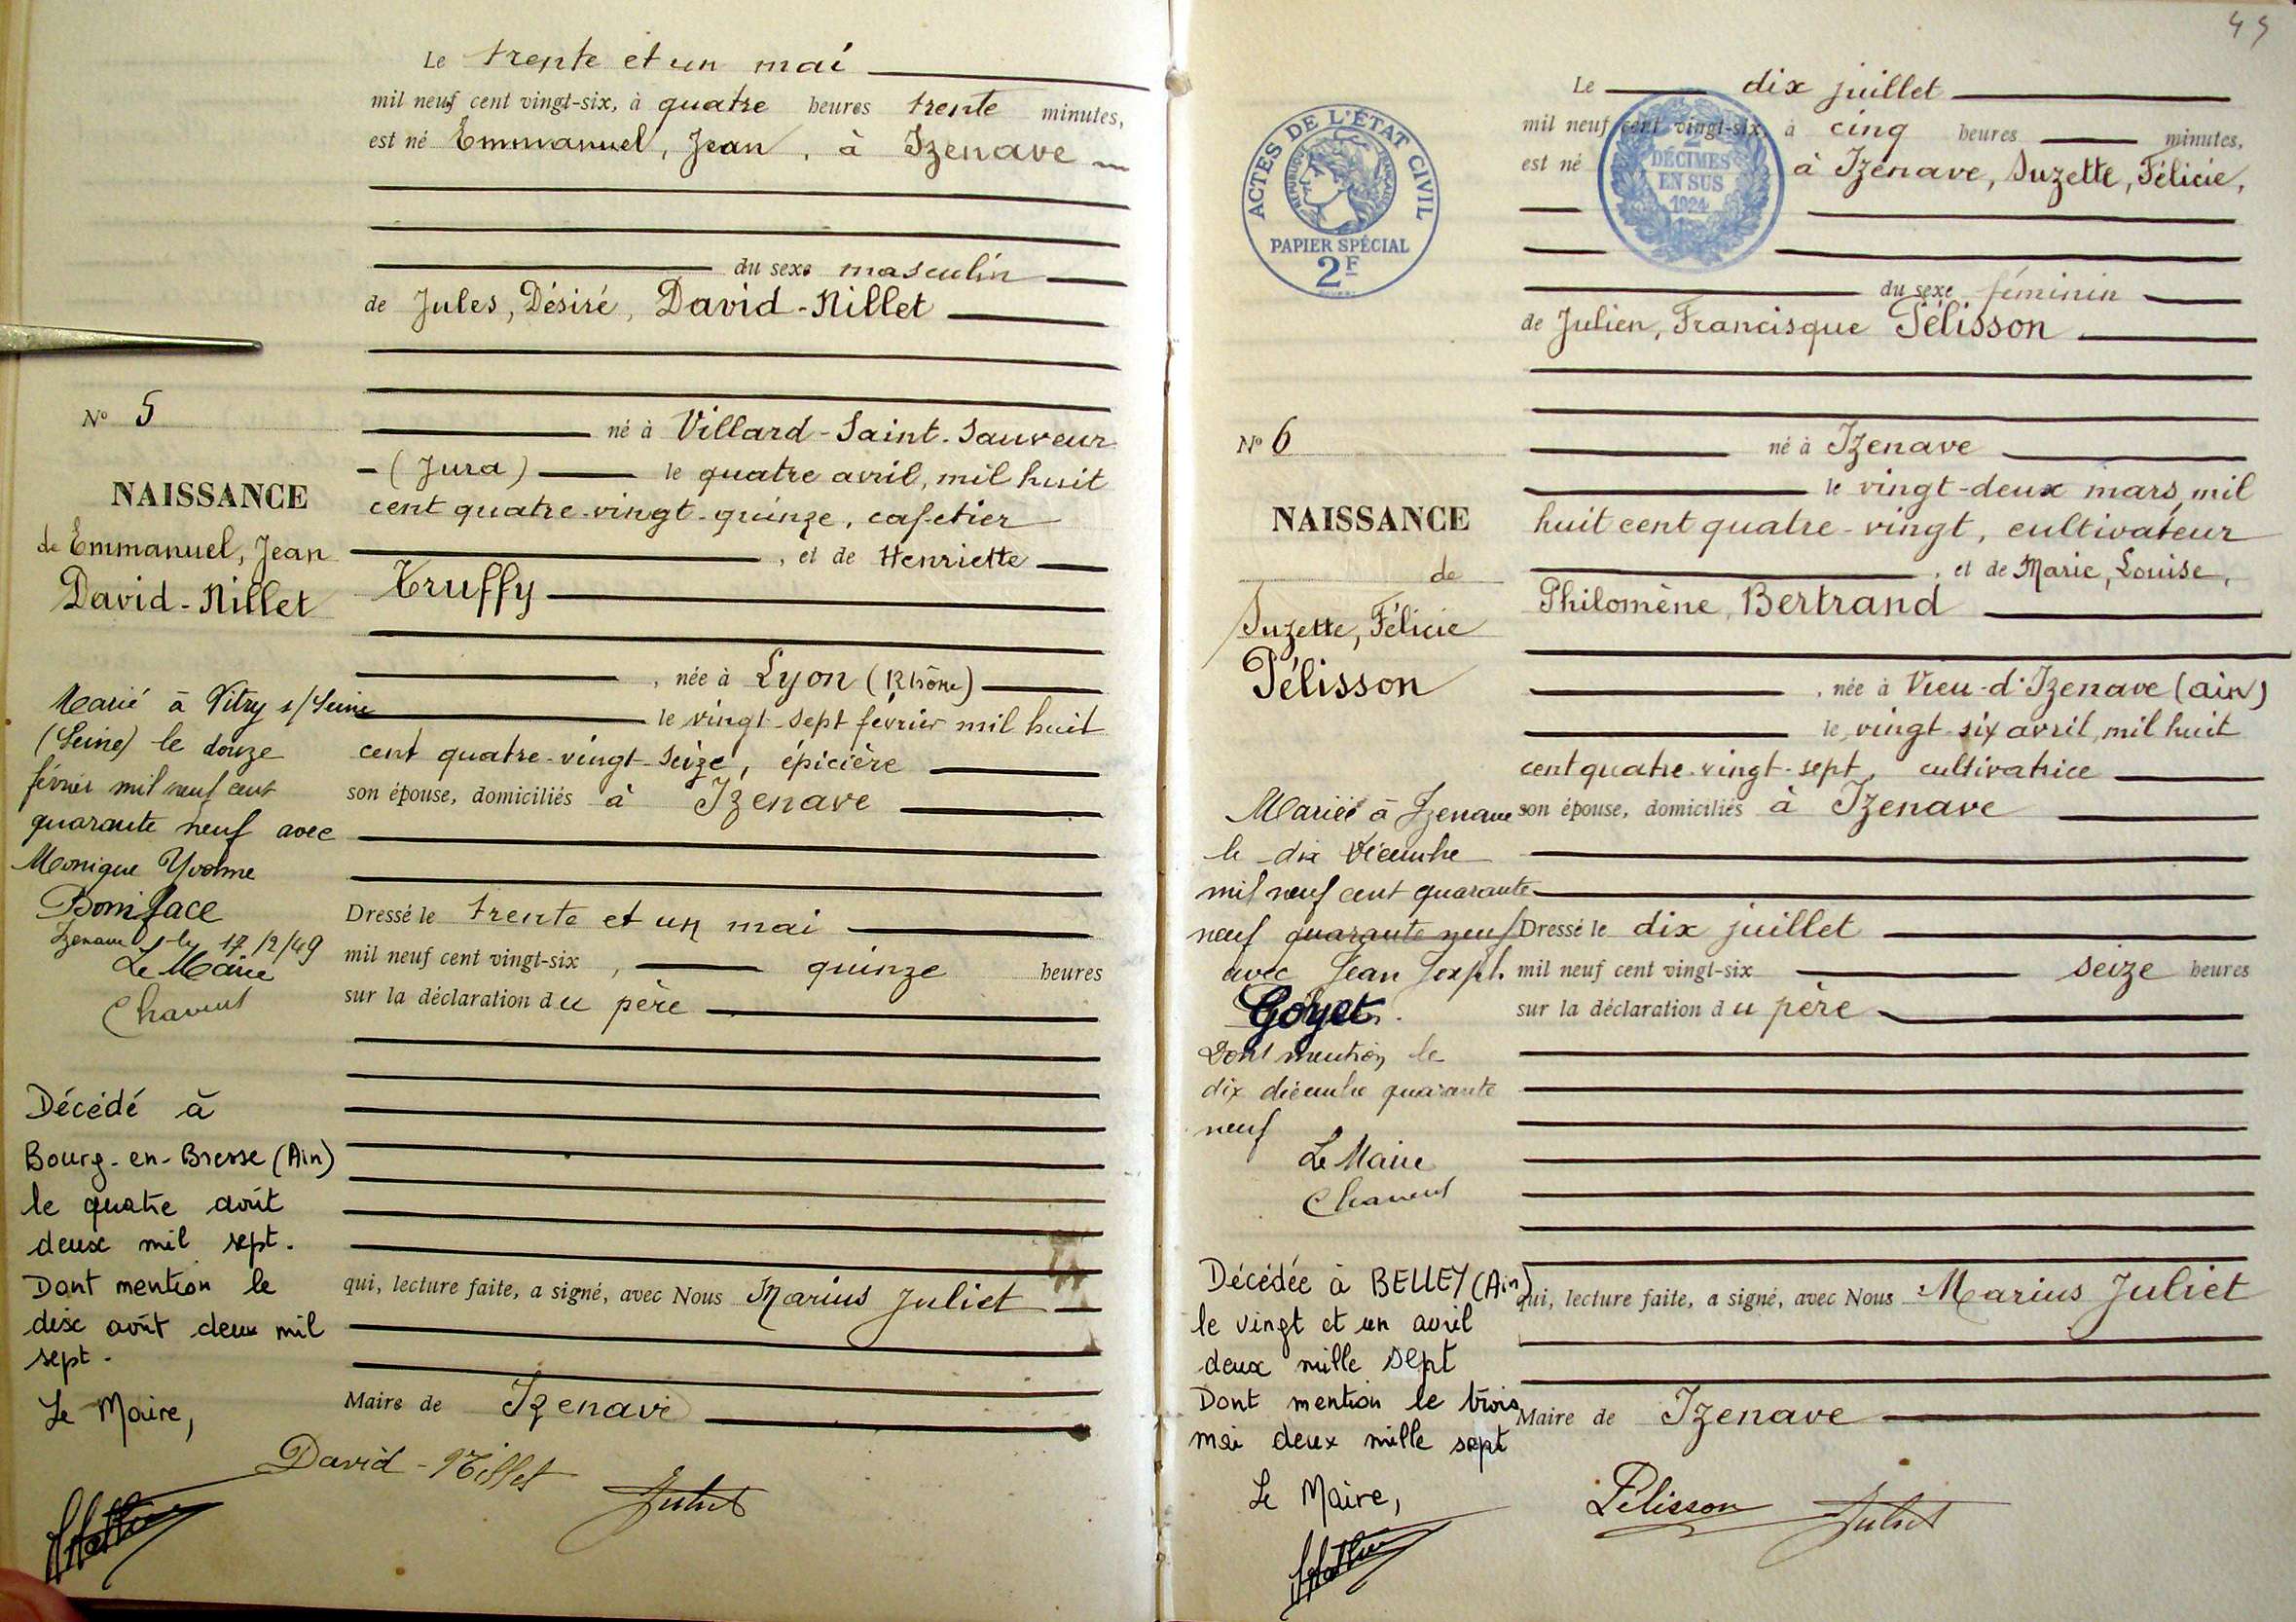 Le trente et un mai
mil neuf cent vingt-six, à quatre heures trente minutes,
est né Emmanuel, Jean, à Izenave
du sexe masculin
de Jules, Désiré, David-Nillet
né à Villard-Saint-Sauveur
(Jura) le quatre avril, mil huit
cent quatre-vingt-quinze, cafetier
, et de Henriette
Truffy
, née à Lyon (Rhône)
le vingt-sept février mil huit
cent quatre-vingt-seize, épicière
son épouse, domiciliés à Izenave
Dressé le trente et un mai
mil neuf cent vingt-six, quinze heures
sur la déclaration du père
qui, lecture faite, a signé, avec Nous Marius Juliet
Maire de Izenave
David-Nillet Juliet
N° 5
NAISSANCE
de Emmanuel, Jean
David-Nillet
Marié à Vitry s/Seine
(Seine) le douze
février mil neuf cent
quarante neuf avec
Monique Yvonne
Boniface
Izenave, le 17/2/49
Le Maire
Décédé à
Bourg-en-Bresse (Ain)
le quatre août
deux mil sept.
Dont mention le
dix août deux mil
sept.
Le Maire,
45
ACTES DE L'ÉTAT CIVIL
RÉPUBLIQUE FRANÇAISE
PAPIER SPÉCIAL
2F
2
DÉCIMES
EN SUS
1924
Le dix juillet
mil neuf cent vingt-six, à cinq heures minutes,
est né à Izenave, Suzette, Félicie,
du sexe féminin
de Julien, Francisque Pélisson
né à Izenave
le vingt-deux mars mil
huit cent quatre-vingt, cultivateur
, et de Marie, Louise,
Philomène, Bertrand
, née à Vieu-d'Izenave (Ain)
le vingt-six avril, mil huit
cent quatre-vingt-sept, cultivatrice
son épouse, domiciliés à Izenave
Dressé le dix juillet
mil neuf cent vingt-six seize heures
sur la déclaration du père
qui, lecture faite, a signé, avec Nous Marius Juliet
Maire de Izenave
Pélisson Juliet
N° 6
NAISSANCE
de
Suzette, Félicie
Pélisson
Mariée à Izenave
le dix décembre
mil neuf cent quarante
neuf quarante neuf
avec Jean Joseph
Goyet.
Dont mention le
dix décembre quarante
neuf
Le Maire
Décédée à BELLEY (Ain)
le vingt et un avril
deux mille sept
Dont mention le trois
mai deux mille sept
Le Maire,